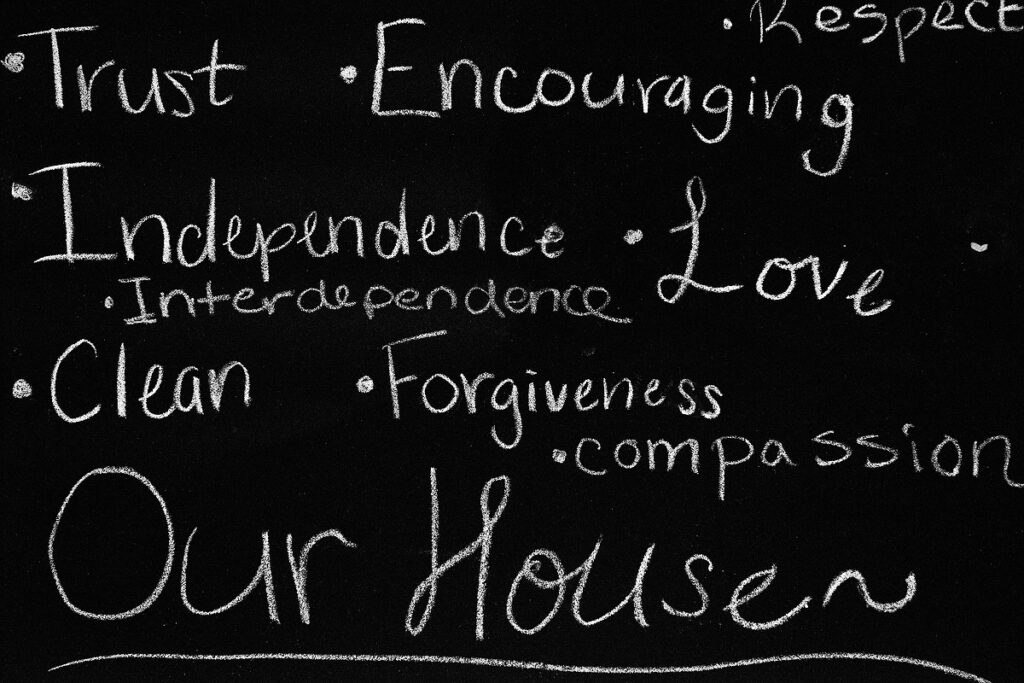 • Respect
• Trust • Encouraging
• Independence • Love •
• Interdependence
• Clean • Forgiveness
• compassion
Our House~